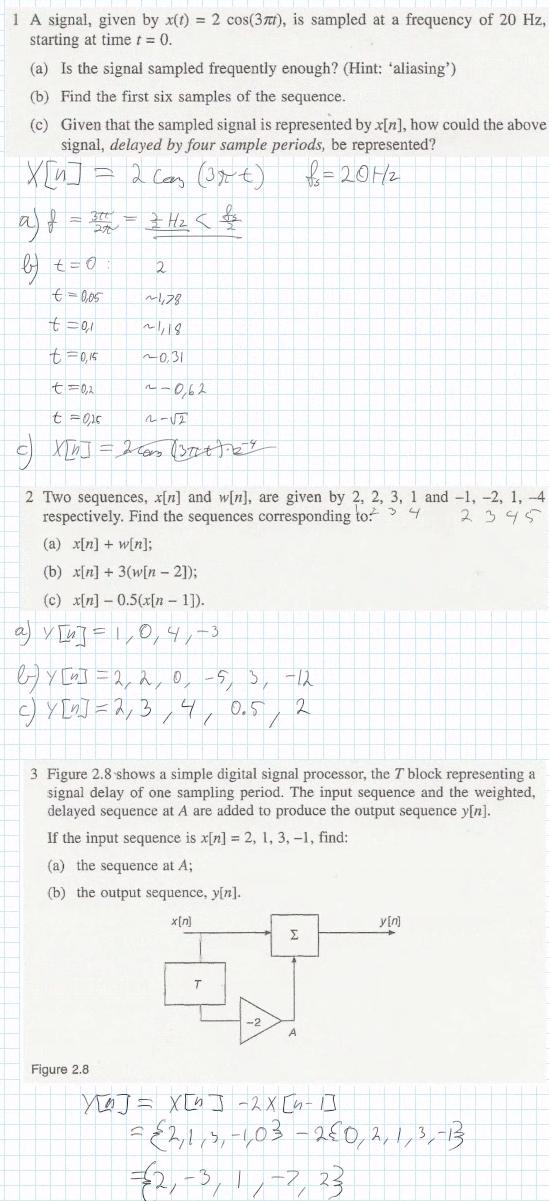 1 A signal, given by x(t) = 2 cos(3πt), is sampled at a frequency of 20 Hz,
starting at time t = 0.
(a) Is the signal sampled frequently enough? (Hint: ‘aliasing’)
(b) Find the first six samples of the sequence.
(c) Given that the sampled signal is represented by x[n], how could the above
signal, delayed by four sample periods, be represented?
X[n] = 2 cos (3πt) fs = 20Hz
a) f = 3π/2π = 3/2 Hz < fs/2
b) t = 0 : 2
t = 0,05 ~1,78
t = 0,1 ~1,18
t = 0,15 ~0.31
t = 0,2 ~-0,62
t = 0,25 ~-√2
c) X[n] = 2 cos (3πt)·z⁻⁴
2 Two sequences, x[n] and w[n], are given by 2, 2, 3, 1 and –1, –2, 1, –4
respectively. Find the sequences corresponding to:
1 2 3 4 2 3 4 5
(a) x[n] + w[n];
(b) x[n] + 3(w[n – 2]);
(c) x[n] – 0.5(x[n – 1]).
a) Y[n] = 1, 0, 4, -3
b) Y[n] = 2, 2, 0, -5, 3, -12
c) Y[n] = 2, 3, 4, 0.5, 2
3 Figure 2.8 shows a simple digital signal processor, the T block representing a
signal delay of one sampling period. The input sequence and the weighted,
delayed sequence at A are added to produce the output sequence y[n].
If the input sequence is x[n] = 2, 1, 3, –1, find:
(a) the sequence at A;
(b) the output sequence, y[n].
x[n] Σ y[n]
T
–2 A
Figure 2.8
Y[n] = X[n] -2X[n-1]
= {2,1,3,-1,0} - 2{0,2,1,3,-1}
={2,-3,1,-7,2}